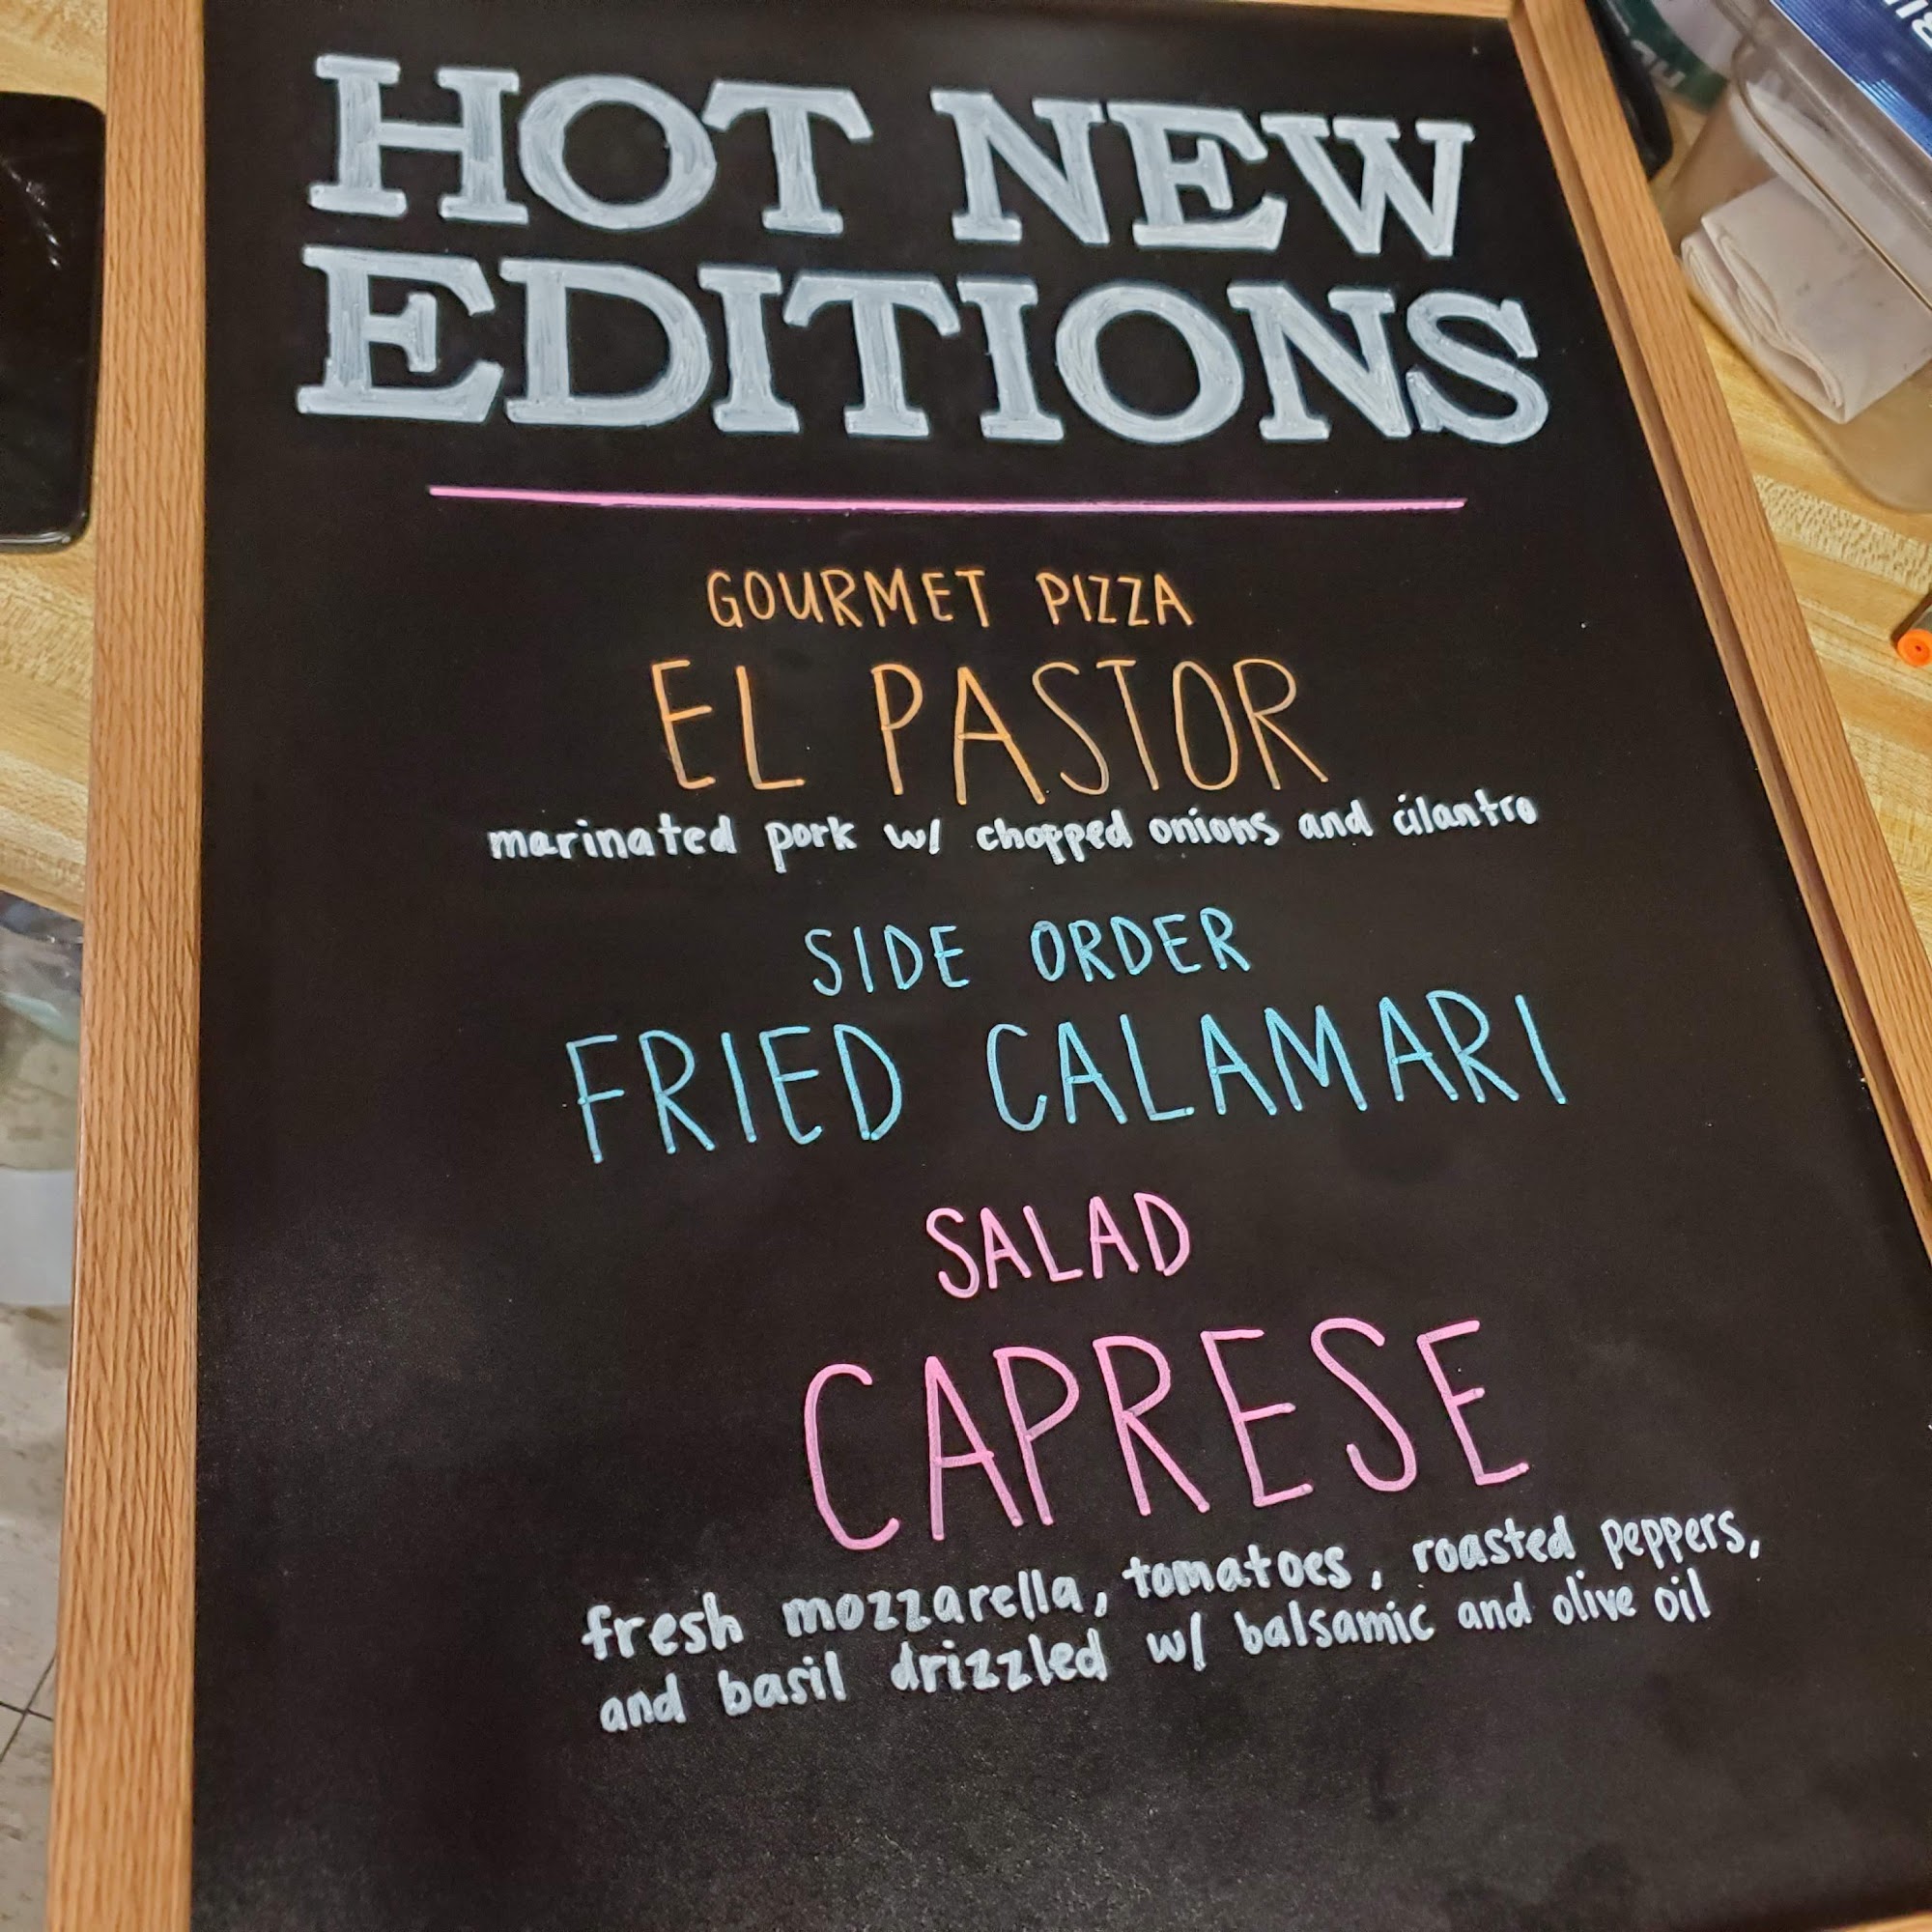 HOT NEW
EDITIONS
GOURMET PIZZA
EL PASTOR
marinated pork w/ chopped onions and cilantro
SIDE ORDER
FRIED CALAMARI
SALAD
CAPRESE
fresh mozzarella, tomatoes, roasted peppers,
and basil drizzled w/ balsamic and olive oil